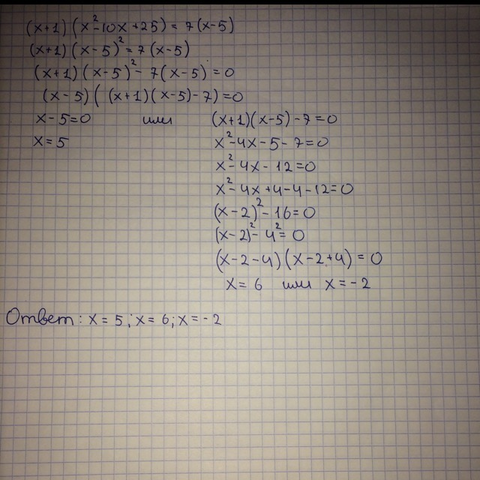 (x+1)(x²-10x+25)=7(x-5)
(x+1)(x-5)²=7(x-5)
(x+1)(x-5)²-7(x-5)=0
(x-5)((x+1)(x-5)-7)=0
x-5=0 или (x+1)(x-5)-7=0
x=5 x²-4x-5-7=0
x²-4x-12=0
x²-4x+4-4-12=0
(x-2)²-16=0
(x-2)²-4²=0
(x-2-4)(x-2+4)=0
x=6 или x=-2
Ответ: x=5; x=6; x=-2